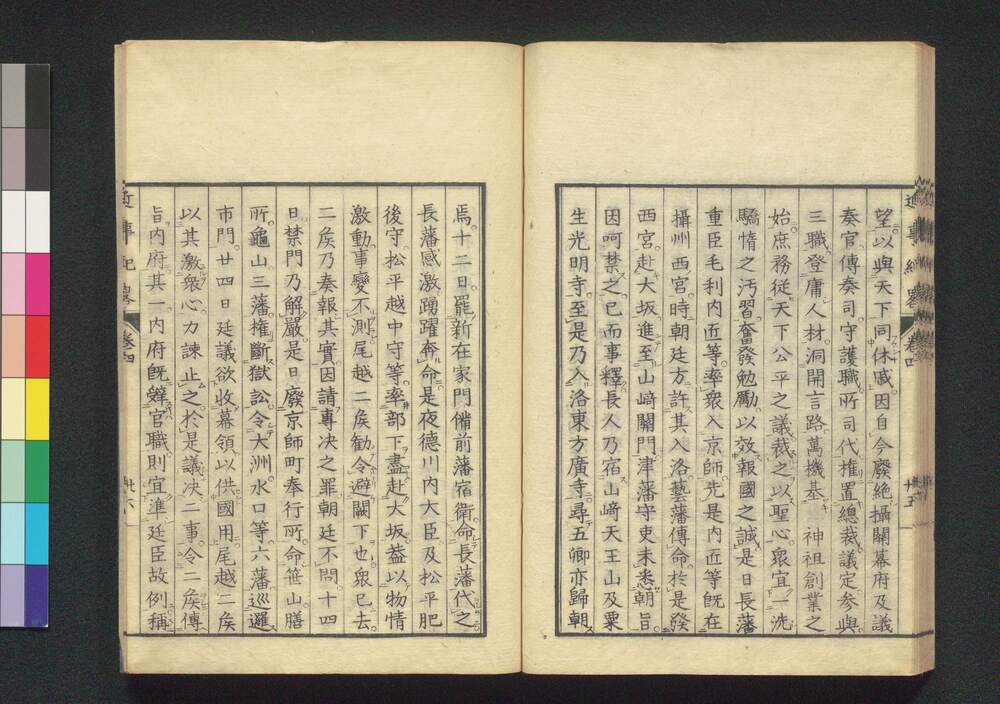 望。以與天下同休戚。因自今廢絶攝關幕府及議
奏官。傳奏司。守護職。所司代。權置總裁議定。參與
三職。登庸人材。洞開言路。萬機基　神祖創業之
始。庶務從天下公平之議。裁之以聖心。衆宜一洗
驕惰之汚習。奮發勉勵。以效報國之誠。是日長藩
重臣毛利内匠等。率衆入京師。先是内匠等既在
攝州西宮。時朝廷方許其入洛。藝藩傳命。於是發
西宮。赴大坂。進至山﨑關門。津藩守吏未悉朝旨。
因呵禁之。已而事釋。長人乃宿山﨑天王山及粟
生光明寺。至是乃入洛東方廣寺。尋五卿亦歸朝
焉。十二日。罷新在家門備前藩宿衛。命長藩代之
長藩感激踴躍奔命。是夜德川内大臣及松平肥
後守。松平越中守等。率部下盡赴大坂。葢以物情
激動。事變不測。尾越二矦勸令避闕下也。衆已去。
二矦乃奏報其實。因請專决之罪。朝廷不問。十四
日。禁門乃解嚴。是日廢京師町奉行所。命笹山膳
所。龜山三藩。權斷獄訟。令大洲。水口等六藩巡邏
市門。廿四日。廷議欲收幕領以供國用。尾越二矦
以其激衆心。力諫止之。於是議决二事。令二矦傳
旨内府。其一内府既辭官職。則宜準廷臣故例稱
近事紀畧
卷四
廿五
近事紀畧
卷四
廿六